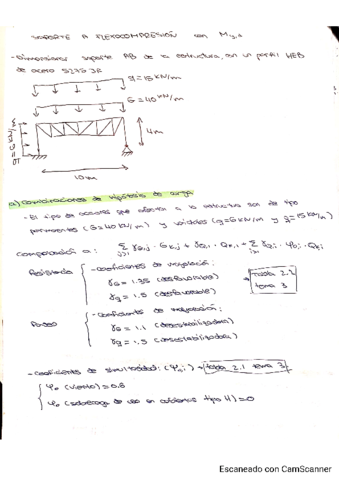 SOPORTE A FLEXOCOMPRESIÓN con My,d
- Dimensionar soporte AB de la estructura, con un perfil HEB
de acero S275 JR
q = 15 kN/m
G = 40 kN/m
q = 6 kN/m
4m
10m
a) combinaciones de hipótesis de carga
- El tipo de acciones que afectan a la estructura son de tipo
permanentes (G = 40 kN/m) y variables (q = 6 kN/m y q = 15 kN/m)
Σ γG,j · Gk,j + γQ,1 · Qk,1 + Σ γQ,i · ψ0,i · Qk,i
j≥1
i>1
Resistencia
- coeficientes de mayoración:
γG = 1.35 (desfavorable)
γq = 1.5 (desfavorable)
tabla 2.2
tema 3
- coeficientes de mayoración:
γG = 1.1 (desestabilizadora)
γq = 1.5 (desestabilizadora)
- coeficientes de simultaneidad: (ψ0,i) → tabla 2.1 tema 3
ψ0 (viento) = 0.6
ψ0 (sobrecarga de uso en cubiertas tipo H) = 0
Escaneado con CamScanner